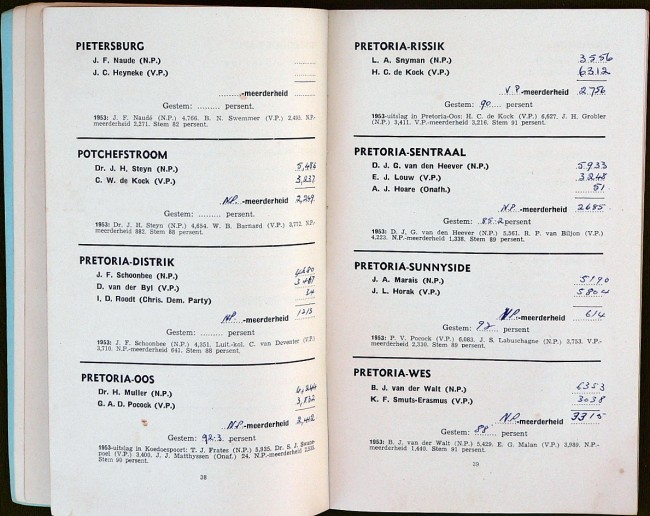 PIETERSBURG
J. F. Naude (N.P.) ........
J. C. Heyneke (V.P.) ........
........-meerderheid ........
Gestem: ........ persent.
1953: J. F. Naudé (N.P.) 4,766. B. N. Swemmer (V.P.) 2,495. NP.-
meerderheid 2,271. Stem 82 persent.
POTCHEFSTROOM
Dr. J. H. Steyn (N.P.) 5,486
C. W. de Kock (V.P.) 3,237
N.P. -meerderheid 2,249
Gestem: ........ persent.
1953: Dr. J. H. Steyn (N.P.) 4,654. W. B. Barnard (V.P.) 3,772. NP.-
meerderheid 882. Stem 88 persent.
PRETORIA-DISTRIK
J. F. Schoonbee (N.P.) 4680
D. van der Byl (V.P.) 3467
I. D. Roodt (Chris. Dem. Party) 34
N.P. -meerderheid 1213
Gestem: ........ persent
1953: J. F. Schoonbee (N.P.) 4,351. Luit.-kol. C. van Deventer (V.P.)
3,710. N.P.-meerderheid 641. Stem 88 persent.
PRETORIA-OOS
Dr. H. Muller (N.P.) 6,244
G. A. D. Pocock (V.P.) 3,802
N.P. -meerderheid 2,442
Gestem: 92.3 persent
1953-uitslag in Koedoespoort: T. J. Frates (N.P.) 5,935. Dr. S. J. Swane-
poel (V.P.) 3,400. J. J. Matthyssen (Onaf.) 24. N.P.-meerderheid 2,535.
Stem 90 persent.
38
PRETORIA-RISSIK
L. A. Snyman (N.P.) 3556
H. C. de Kock (V.P.) 6312
V.P. -meerderheid 2756
Gestem: 90 persent
1953-uitslag in Pretoria-Oos: H. C. de Kock (V.P.) 6,627. J. H. Grobler
(N.P.) 3,411. V.P.-meerderheid 3,216. Stem 91 persent.
PRETORIA-SENTRAAL
D. J. G. van den Heever (N.P.) 5933
E. J. Louw (V.P.) 3248
A. J. Hoare (Onafh.) 51
N.P. -meerderheid 2685
Gestem: 85.2 persent
1953: D. J. G. van den Heever (N.P.) 5,561. B. P. van Biljon (V.P.)
4,223. N.P.-meerderheid 1,338. Stem 89 persent.
PRETORIA-SUNNYSIDE
J. A. Marais (N.P.) 5190
J. L. Horak (V.P.) 5804
-meerderheid 614
Gestem: 92 persent
1953: P. V. Pocock (V.P.) 6,083. J. S. Labuschagne (N.P.) 3,753. V.P.-
meerderheid 2,330. Stem 89 persent.
PRETORIA-WES
B. J. van der Walt (N.P.) 6353
K. F. Smuts-Erasmus (V.P.) 3038
N.P. -meerderheid 3315
Gestem: 88 persent
1953: B. J. van der Walt (N.P.) 5,429. E. G. Malan (V.P.) 3,989. N.P.-
meerderheid 1,440. Stem 91 persent.
39